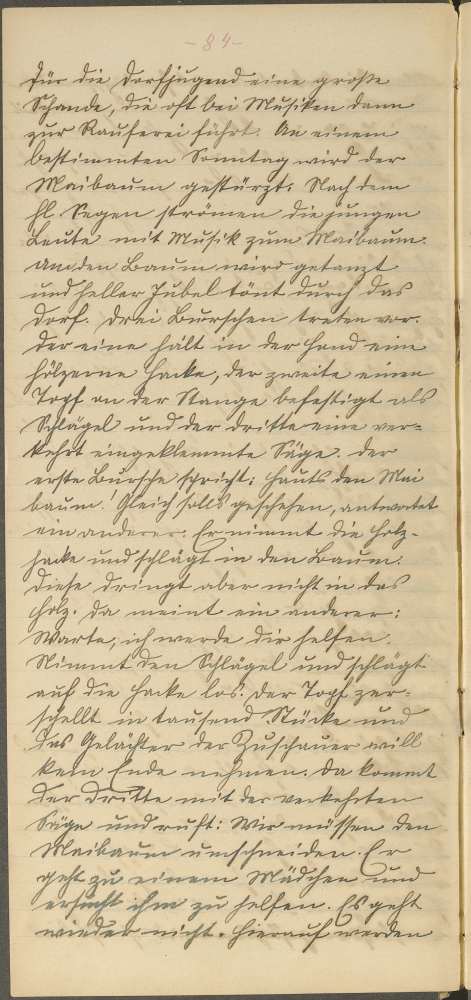 - 84 -
für die Dorfjugend eine große
Schande, die oft bei Musiken dann
zur Rauferei führt. An einem
bestimmten Sonntag wird der
Maibaum gestürzt. Nach dem
hl. Segen strömen die jungen
Leute mit Musik zum Maibaum.
Um den Baum wird getanzt
und heller Jubel tönt durch das
Dorf. Drei Burschen treten vor.
Der eine hält in der Hand eine
hölzerne Hacke, der zweite einen
Topf an der Stange befestigt als
Schlägel und der dritte eine ver=
kehrt eingeklemmte Säge. Der
erste Bursche spricht: Hauts den Mai
baum! Gleich solls geschehen, antwortet
ein anderer. Er nimmt die Holz-
hacke und schlägt in den Baum.
Diese dringt aber nicht in das
Holz. Da meint ein anderer:
Warte, ich werde dir helfen.
Nimmt den Schlägel und schlägt
auf die Hacke los. Der Topf zer-
schellt in tausend Stücke und
das Gelächter der Zuschauer will
kein Ende nehmen. Da kommt
der dritte mit der verkehrten
Säge und ruft: Wir müssen den
Maibaum umschneiden. Er
geht zu einem Mädchen und
ersucht ihm zu helfen. Es geht
wieder nicht. Hierauf werden